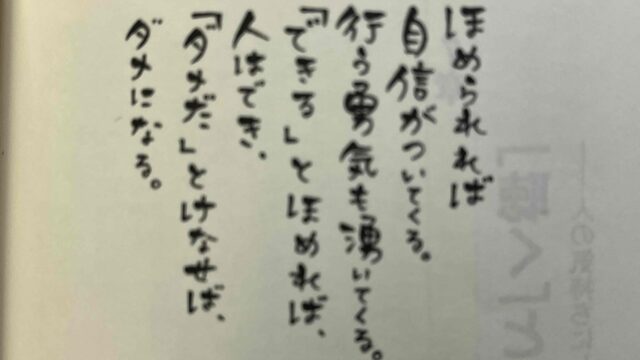 ほめられれば
自信がついてくる。
行う勇気も湧いてくる。
「できる」とほめれば、
人はでき、
「ダメだ」とけなせば、
ダメになる。